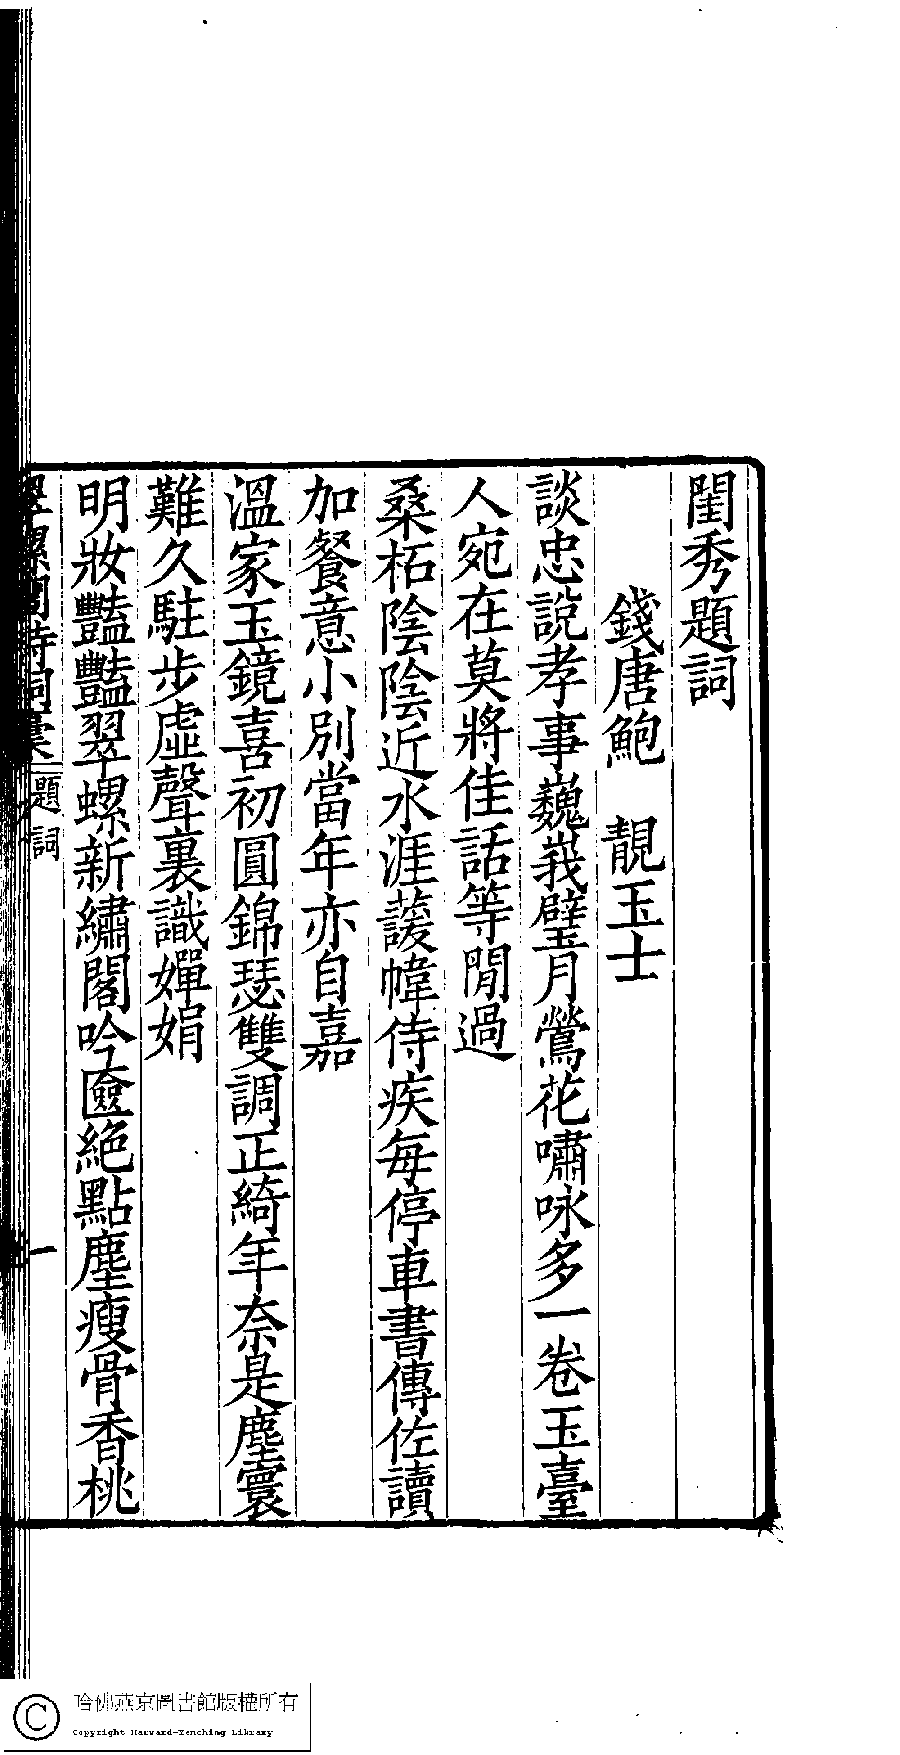 閨秀題詞
錢唐鮑　靚玉士
談忠說孝事巍峩璧月鶯花嘯咏多一卷玉臺
人宛在莫將佳話等閒過
桑柘陰陰近水涯蘐幃侍疾每停車書傳佐讀
加餐意小別當年亦自嘉
溫家玉鏡喜初圓錦瑟雙調正綺年奈是塵寰
難久駐步虛聲裏識嬋娟
明妝豔豔翠螺新繡閣吟匳絕點塵瘦骨香桃
翠螺閣詩詞稾 題詞 一
哈佛燕京圖書館版權所有
Copyright Harvard-Yenching Library